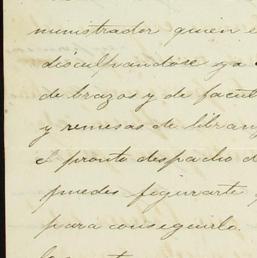 ministrador quien e
disculpandose ya
de brazos y de facul
y remesas de libran
el pronto despacho d
puedes figurarte
para conseguirlo.